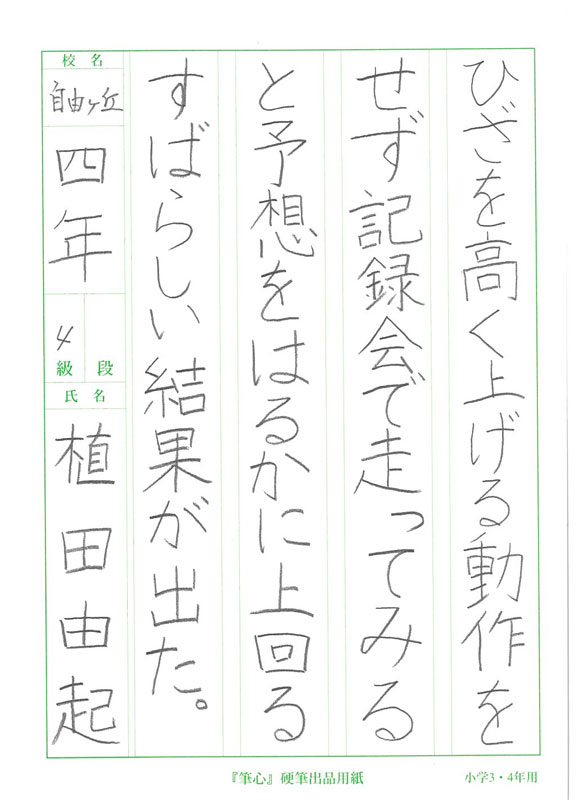 ひざを高く上げる動作を
せず記録会で走ってみる
と予想をはるかに上回る
すばらしい結果が出た。
校名
自由ヶ丘
四年
段
4級
氏名
植田由起
『筆心』硬筆出品用紙
小学3・4年用